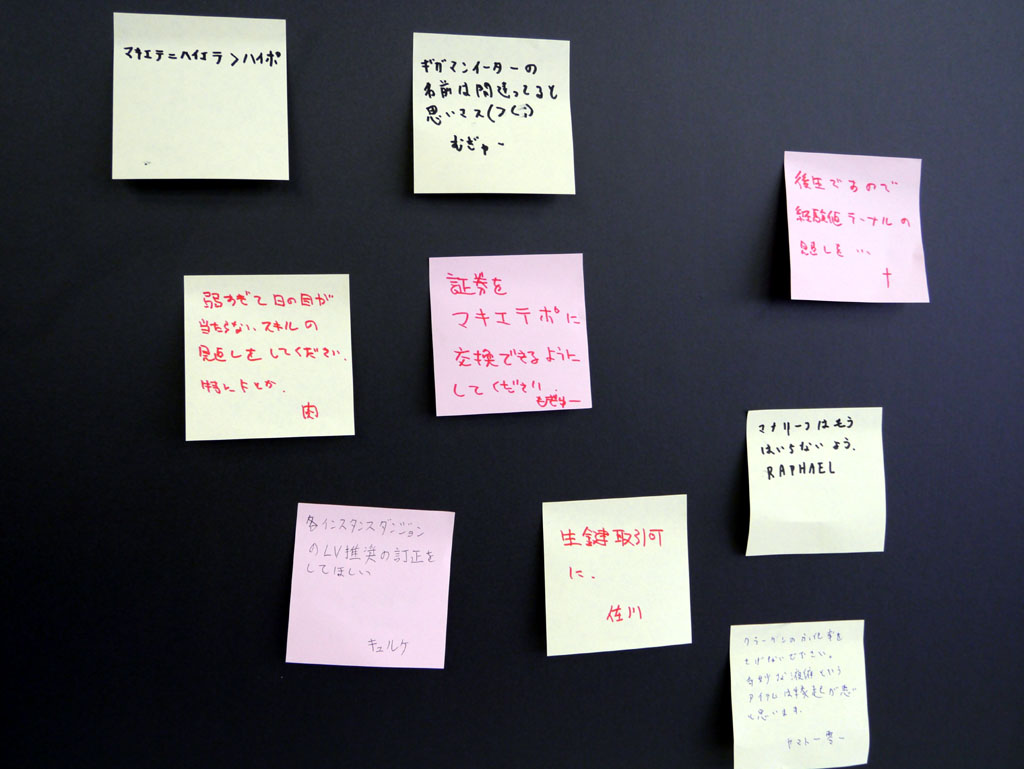 マキエテ=ハイエラ>ハイポ
ギガマンイーターの
名前は間違ってると
思いマス(つく;)
むぎゅー
後生でるので
経験値テーブルの
見直しを…
弱すぎて日の目が
当たらないスキルの
見直しをしてください.
特にドとか.
肉
証券を
マキエテポに
交換できるように
してください.
むぎゅー
マナリーフはもう
はいらないよう.
RAPHAEL
各インスタンスダンジョン
のLV推奨の訂正を
してほしい
キュルケ
生鍵取引可
に.
佐川
クラーケンの
さげないで下さい。
奇妙な液体という
アイテムは
と思います.
ヤマト一零一